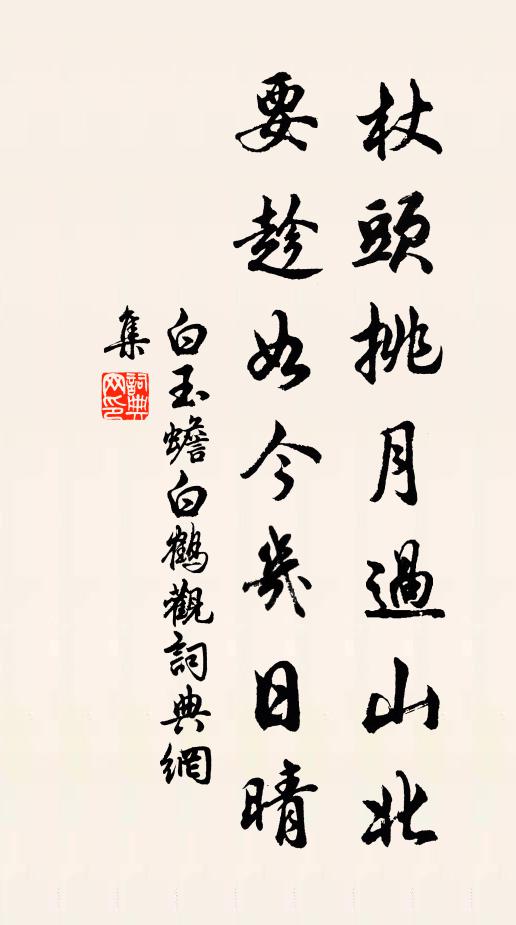 杖頭挑月過山北
要趁如今幾日晴
白玉蟾白鶴觀詞典網
集
詞典
网印